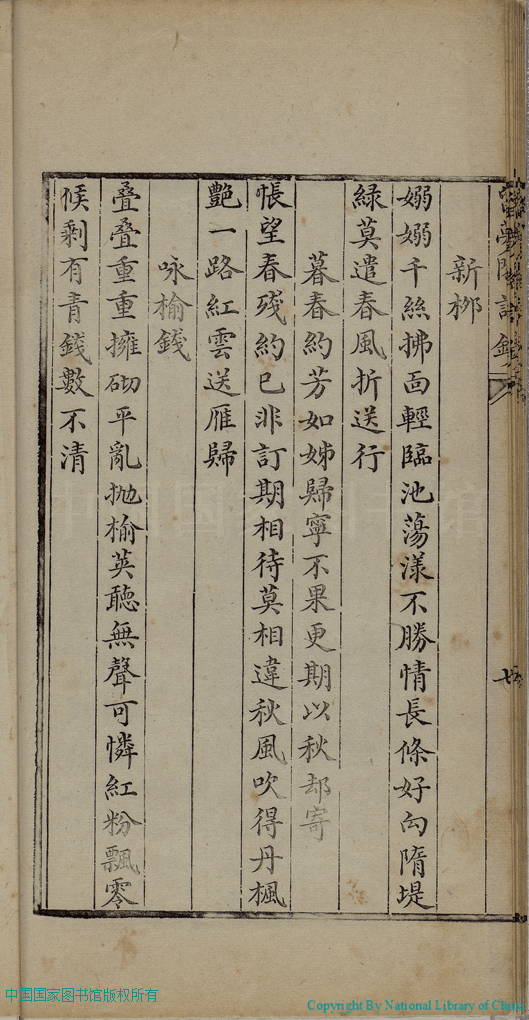 新栁
嫋嫋千絲拂面輕臨池蕩漾不勝情長條好向隋堤
緑莫遣春風折送行
暮春約芳如姊歸寧不果更期以秋却寄
悵望春殘約已非訂期相待莫相違秋風吹得丹楓
艷一路紅雲送雁歸
咏榆錢
疊疊重重擁砌平亂抛榆莢聽無聲可憐紅粉飄零
候剩有青錢數不清
中国国家图书馆版权所有
Copyright By National Library of China